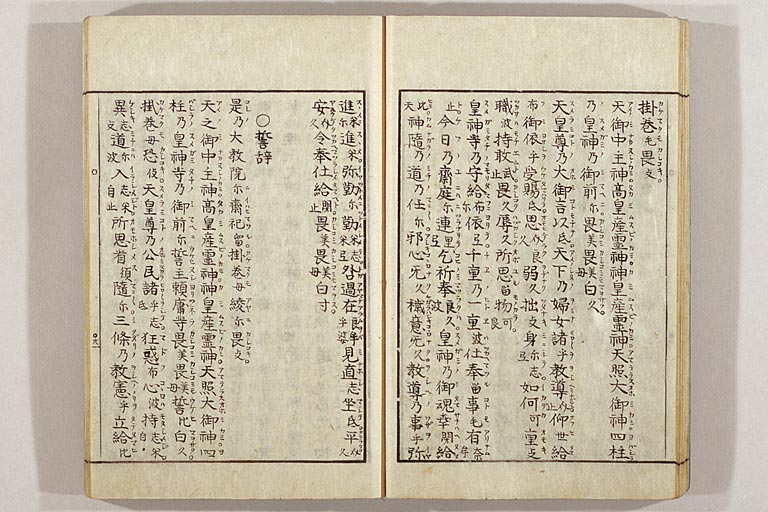 掛巻毛畏支
天御中主神高皇産霊神神皇産霊神天照大御神四柱
乃皇神乃御前尓畏美畏美毛白久
天皇尊乃大御言以氐天下乃婦女諸乎教導仰世給
布御依乎受賜氐思良久弱久拙支身尓志如何可重支
職波持敢武畏久辱久所思留物可良
皇神等乃守給布依弖千重乃一重波仕奉留事毛有奈牟
止今日乃齋庭尓連里乞祈奉良久皇神乃御魂幸閇給比
神随乃道乃任尓邪心无久穢意无久教導乃事乎弥
進尓進米弥勤尓勤米志米弖過在良乎波見直志坐氐平久
安久令奉仕給閇止畏美畏美毛白寸
○誓辞
是乃大教院尓齋祀留掛巻毋綾尓畏支
天之御中主神高皇産霊神神皇産霊神天照大御神四
柱乃皇神等乃御前尓誓主頼庸等畏美畏美毋誓比白久
掛巻毋恐伎天皇尊乃公民諸乎志氐狂惑布心波持志米自
異志支道尓波入志米自止所思看須随尓三條乃教憲乎立給比